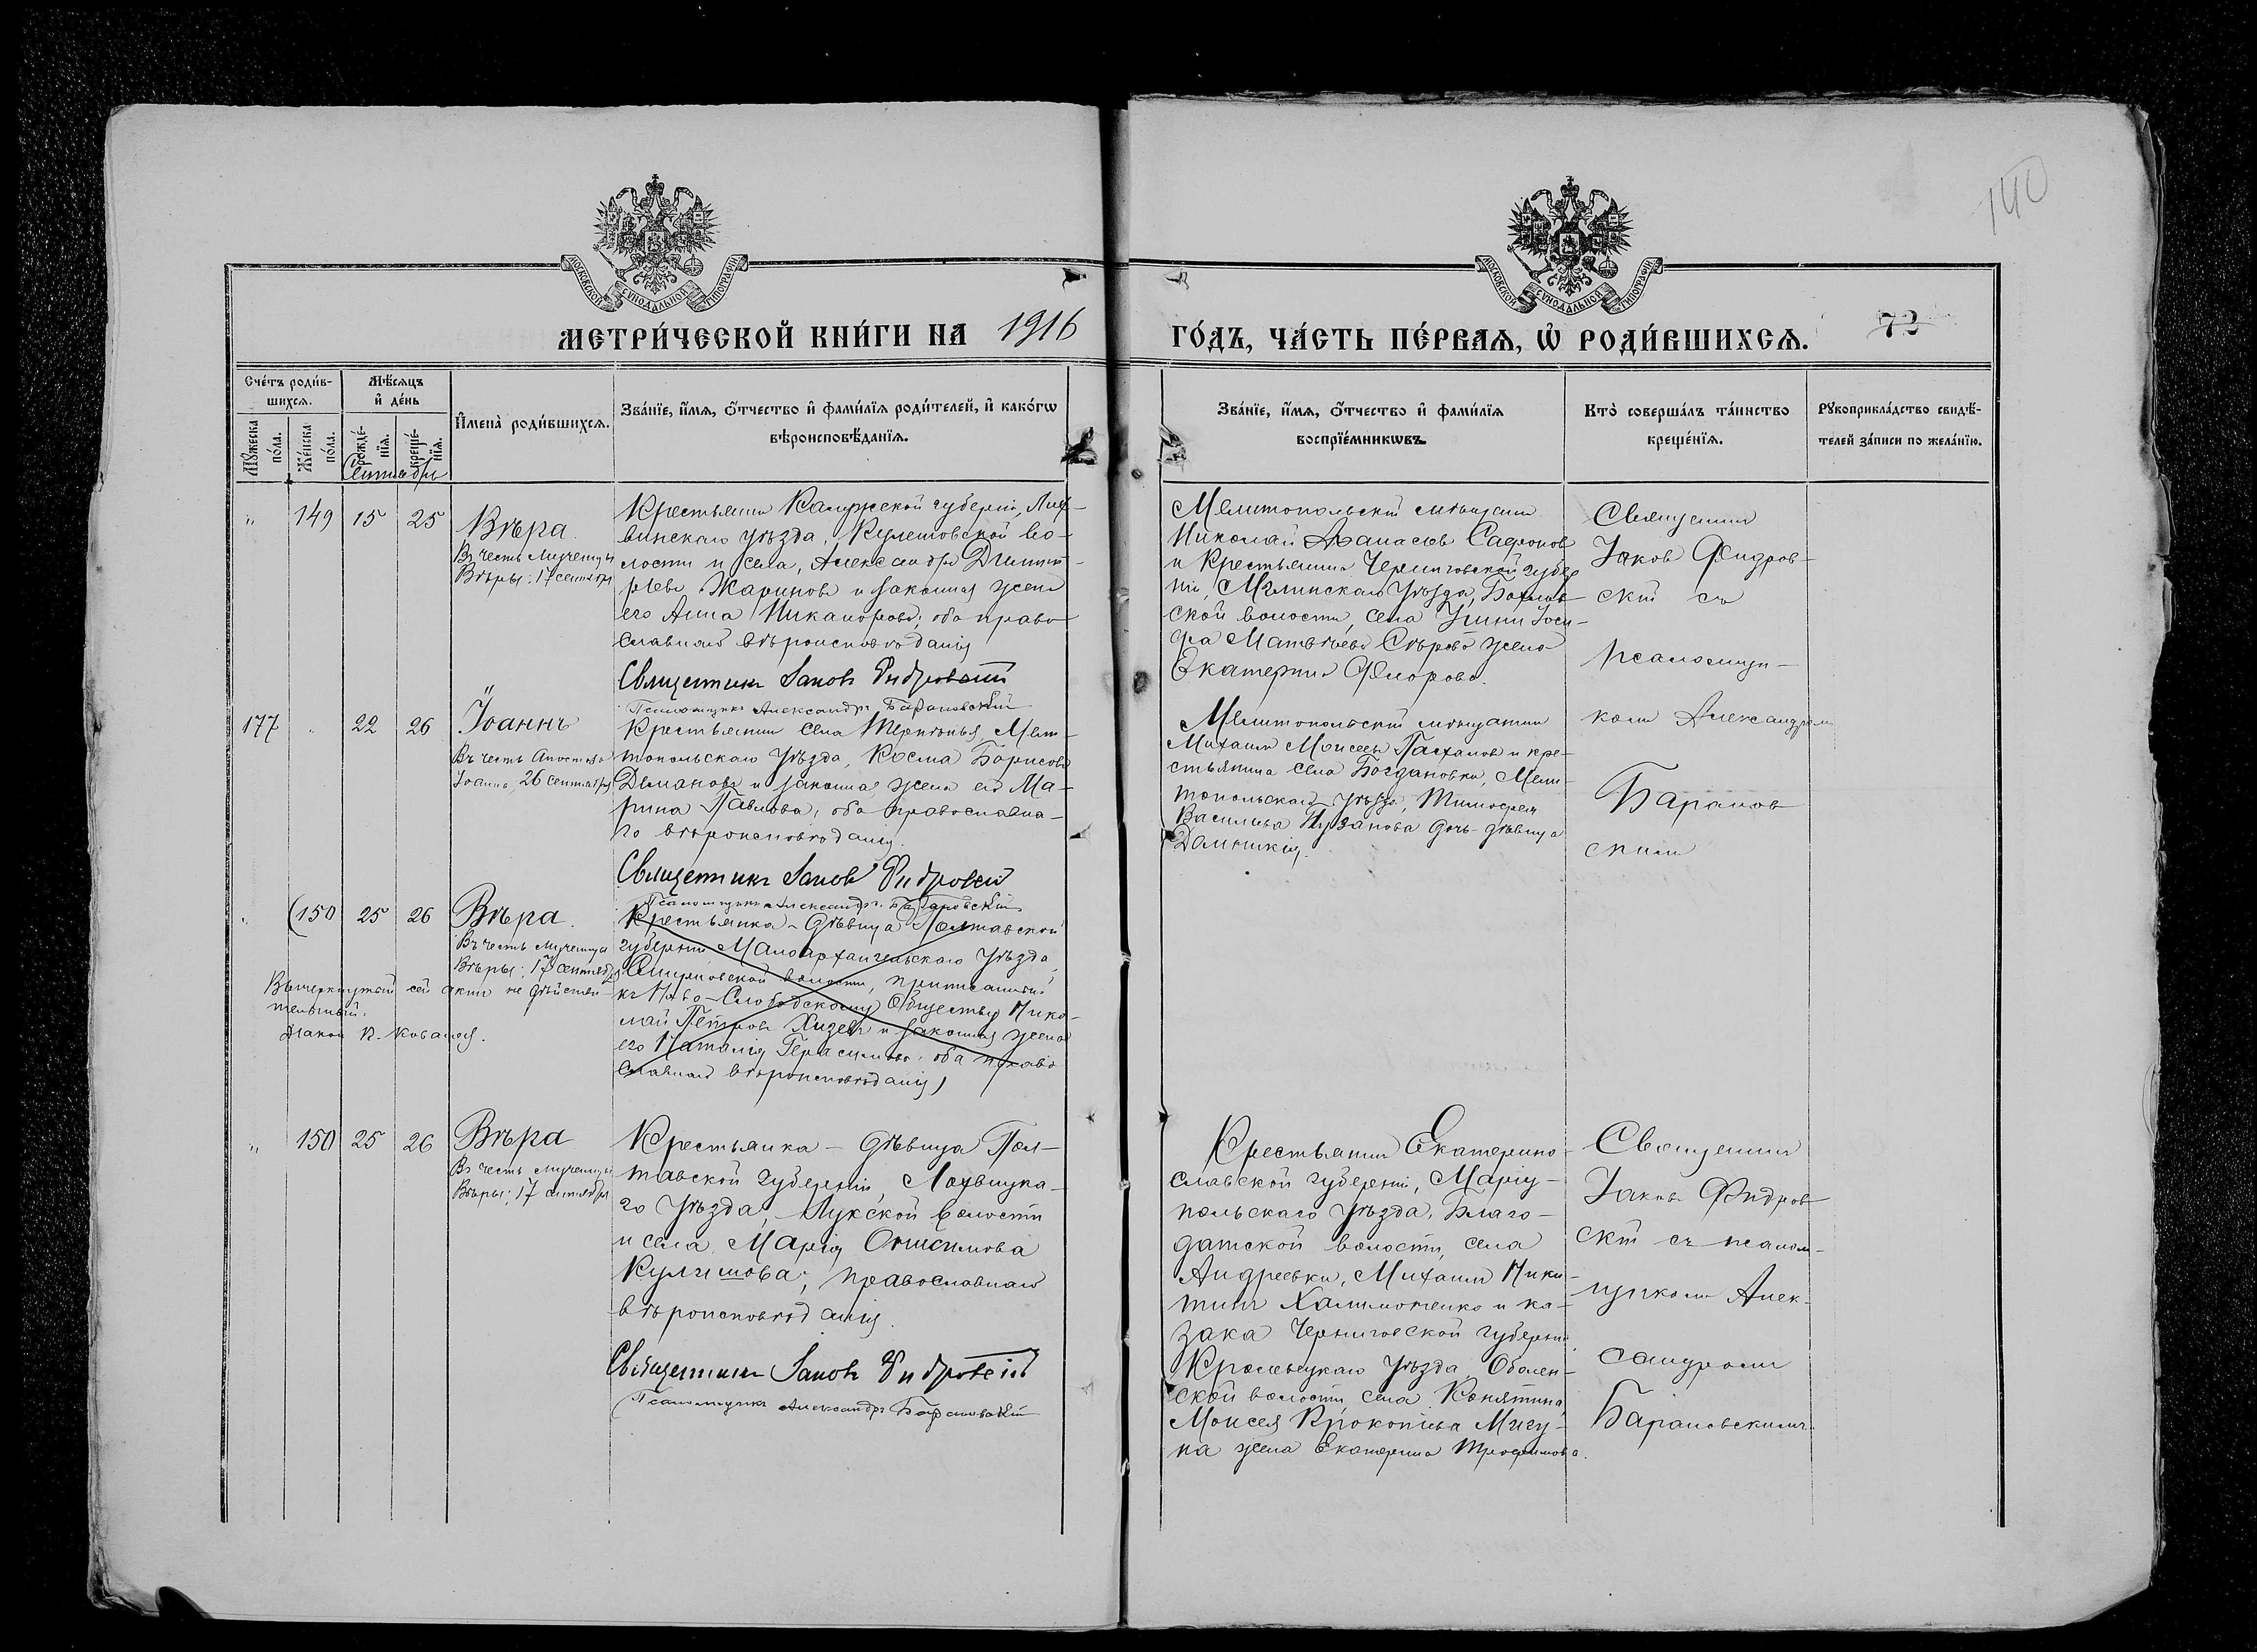 140
МОСКОВСКОЙ СѴНОДАЛЬНОЙ ТИПОГРАФІИ
МОСКОВСКОЙ СѴНОДАЛЬНОЙ ТИПОГРАФІИ
МЕТРИ́ЧЕСКОЙ КНИ́ГИ НА 1916 ГО́ДЪ, ЧА́СТЬ ПЕ́РВАѦ, Ѡ҆ РОДИ́ВШИХСѦ. 72
Сче́тъ роди́в-
шихсѧ.
Мꙋ́жеска по́ла.
Же́нска по́ла.
Мѣ́сѧцъ
и҆ де́нь
рожде́-
нїѧ.
креще́-
нїѧ.
И҆мена̀ роди́вшихсѧ.
Зва́нїе, и҆́мѧ, ѻ҆́тчество и҆ фами́лїѧ роди́телей, и҆ како́гѡ
вѣроисповѣ́данїѧ.
Зва́нїе, и҆́мѧ, ѻ҆́тчество и҆ фами́лїѧ
воспрїе́мникѡвъ.
Кто̀ соверша́лъ та́инство
креще́нїѧ.
Рꙋкоприкла́дство свидѣ́-
телей за́писи по жела́нїю.
Сентябрь
" 149 15 25
Вѣра.
Въ честь мученицы
Вѣры; 17 сентября
Крестьянин Калужской губерніи, Лих-
винскаго уѣзда, Кулешовской во-
лости и села, Александр Димит-
ріев Жаринов и законная жена
его Анна Никанорова; оба право-
славнаго вѣроисповѣданія
Священникъ Іаковъ Фидровскій
Псаломщикъ Александръ Барановскій
Мелитопольскій мѣщанин
Николай Афанасіев Сафронов
и крестьянина Черниговской губер
ніи, Мглинскаго уѣзда,
ской волости, села Іоси-
фа Матвѣева жена
Екатерина Флорова.
Священник
Іаков Фидров-
скій съ
псаломщи-
ком Александром
Баранов
ским
177 " 22 26
Іоаннъ
Въ честь Апостола
Іоанна, 26 сентября
Крестьянин села Терпѣнья, Мели-
топольскаго уѣзда, Косма Борисов
Деманов и законная жена его Ма-
рина Павлова, оба православна-
го вѣроисповѣданія.
Священникъ Іаковъ Фидровскій
Псаломщикъ Александръ Барановскій
Мелитопольскій мѣщанин
Михаил Моисеев Пахалов и кре-
стьянина села Богдановки, Мели-
топольскаго уѣзда, Тимофея
Васильева Пузанова дочь-дѣвица
Домникія.
" (150 25 26
Вѣра.
Въ честь мученицы
Вѣры; 17 сентября
Вычеркнутый сей актъ не дѣйстви-
тельный.
Диакон К. Ковалев.
Крестьянка-дѣвица Полтавской
губерніи Малоархангельскаго уѣзда,
волости, приписанный
к Ново-Слободскому обществу Нико-
лай Петров Хизев и законная жена
его Наталія Герасимова; оба право-
славнаго вѣроисповѣданія)
" 150 25 26
Вѣра
В честь мученицы
Вѣры; 17 сентября
Крестьянка - дѣвица Пол-
тавской губерніи, Лохвицка-
го уѣзда, Лукской волости
и села, Марія Онисимова
Кулишова; православнаго
вѣроисповѣданія.
Священникъ Іаковъ Фидровскій
Псаломщикъ Александръ Барановскій
Крестьянин Екатерино-
славской губерніи, Маріу-
польскаго уѣзда, Благо-
датской волости, села
Андреевки, Михаил Ники-
тин Халимоненко и ка-
зака Черниговской губерніи
Кролевецкаго уѣзда, Оболон-
ской волости, села Конятина
Моисея Прокопіева Мигу-
на жена Екатерина Трофимова.
Священник
Іаков Фидров
скій съ псалом-
щиком Алек-
сандром
Барановским.